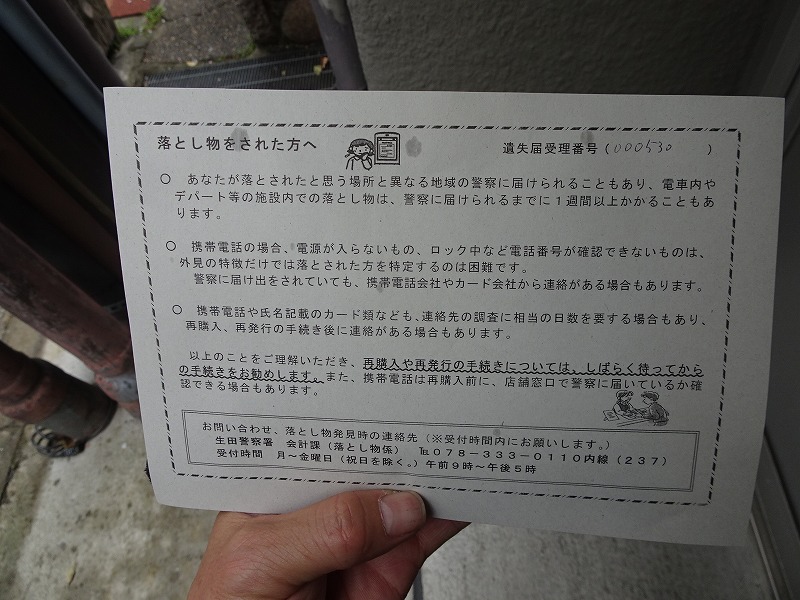 落とし物をされた方へ
遺失届受理番号（000530　）
○　あなたが落とされたと思う場所と異なる地域の警察に届けられることもあり、電車内や
デパート等の施設内での落とし物は、警察に届けられるまでに１週間以上かかることもあ
ります。
○　携帯電話の場合、電源が入らないもの、ロック中など電話番号が確認できないものは、
外見の特徴だけでは落とされた方を特定するのは困難です。
警察に届け出をされていても、携帯電話会社やカード会社から連絡がある場合もあります。
○　携帯電話や氏名記載のカード類なども、連絡先の調査に相当の日数を要する場合もあり、
再購入、再発行の手続き後に連絡がある場合もあります。
以上のことをご理解いただき、再購入や再発行の手続きについては、しばらく待ってから
の手続きをお勧めします。また、携帯電話は再購入前に、店舗窓口で警察に届いているか確
認できる場合もあります。
お問い合わせ、落とし物発見時の連絡先（※受付時間内にお願いします。）
生田警察署　会計課（落とし物係）　℡０７８－３３３－０１１０内線（２３７）
受付時間　月～金曜日（祝日を除く。）午前９時～午後５時